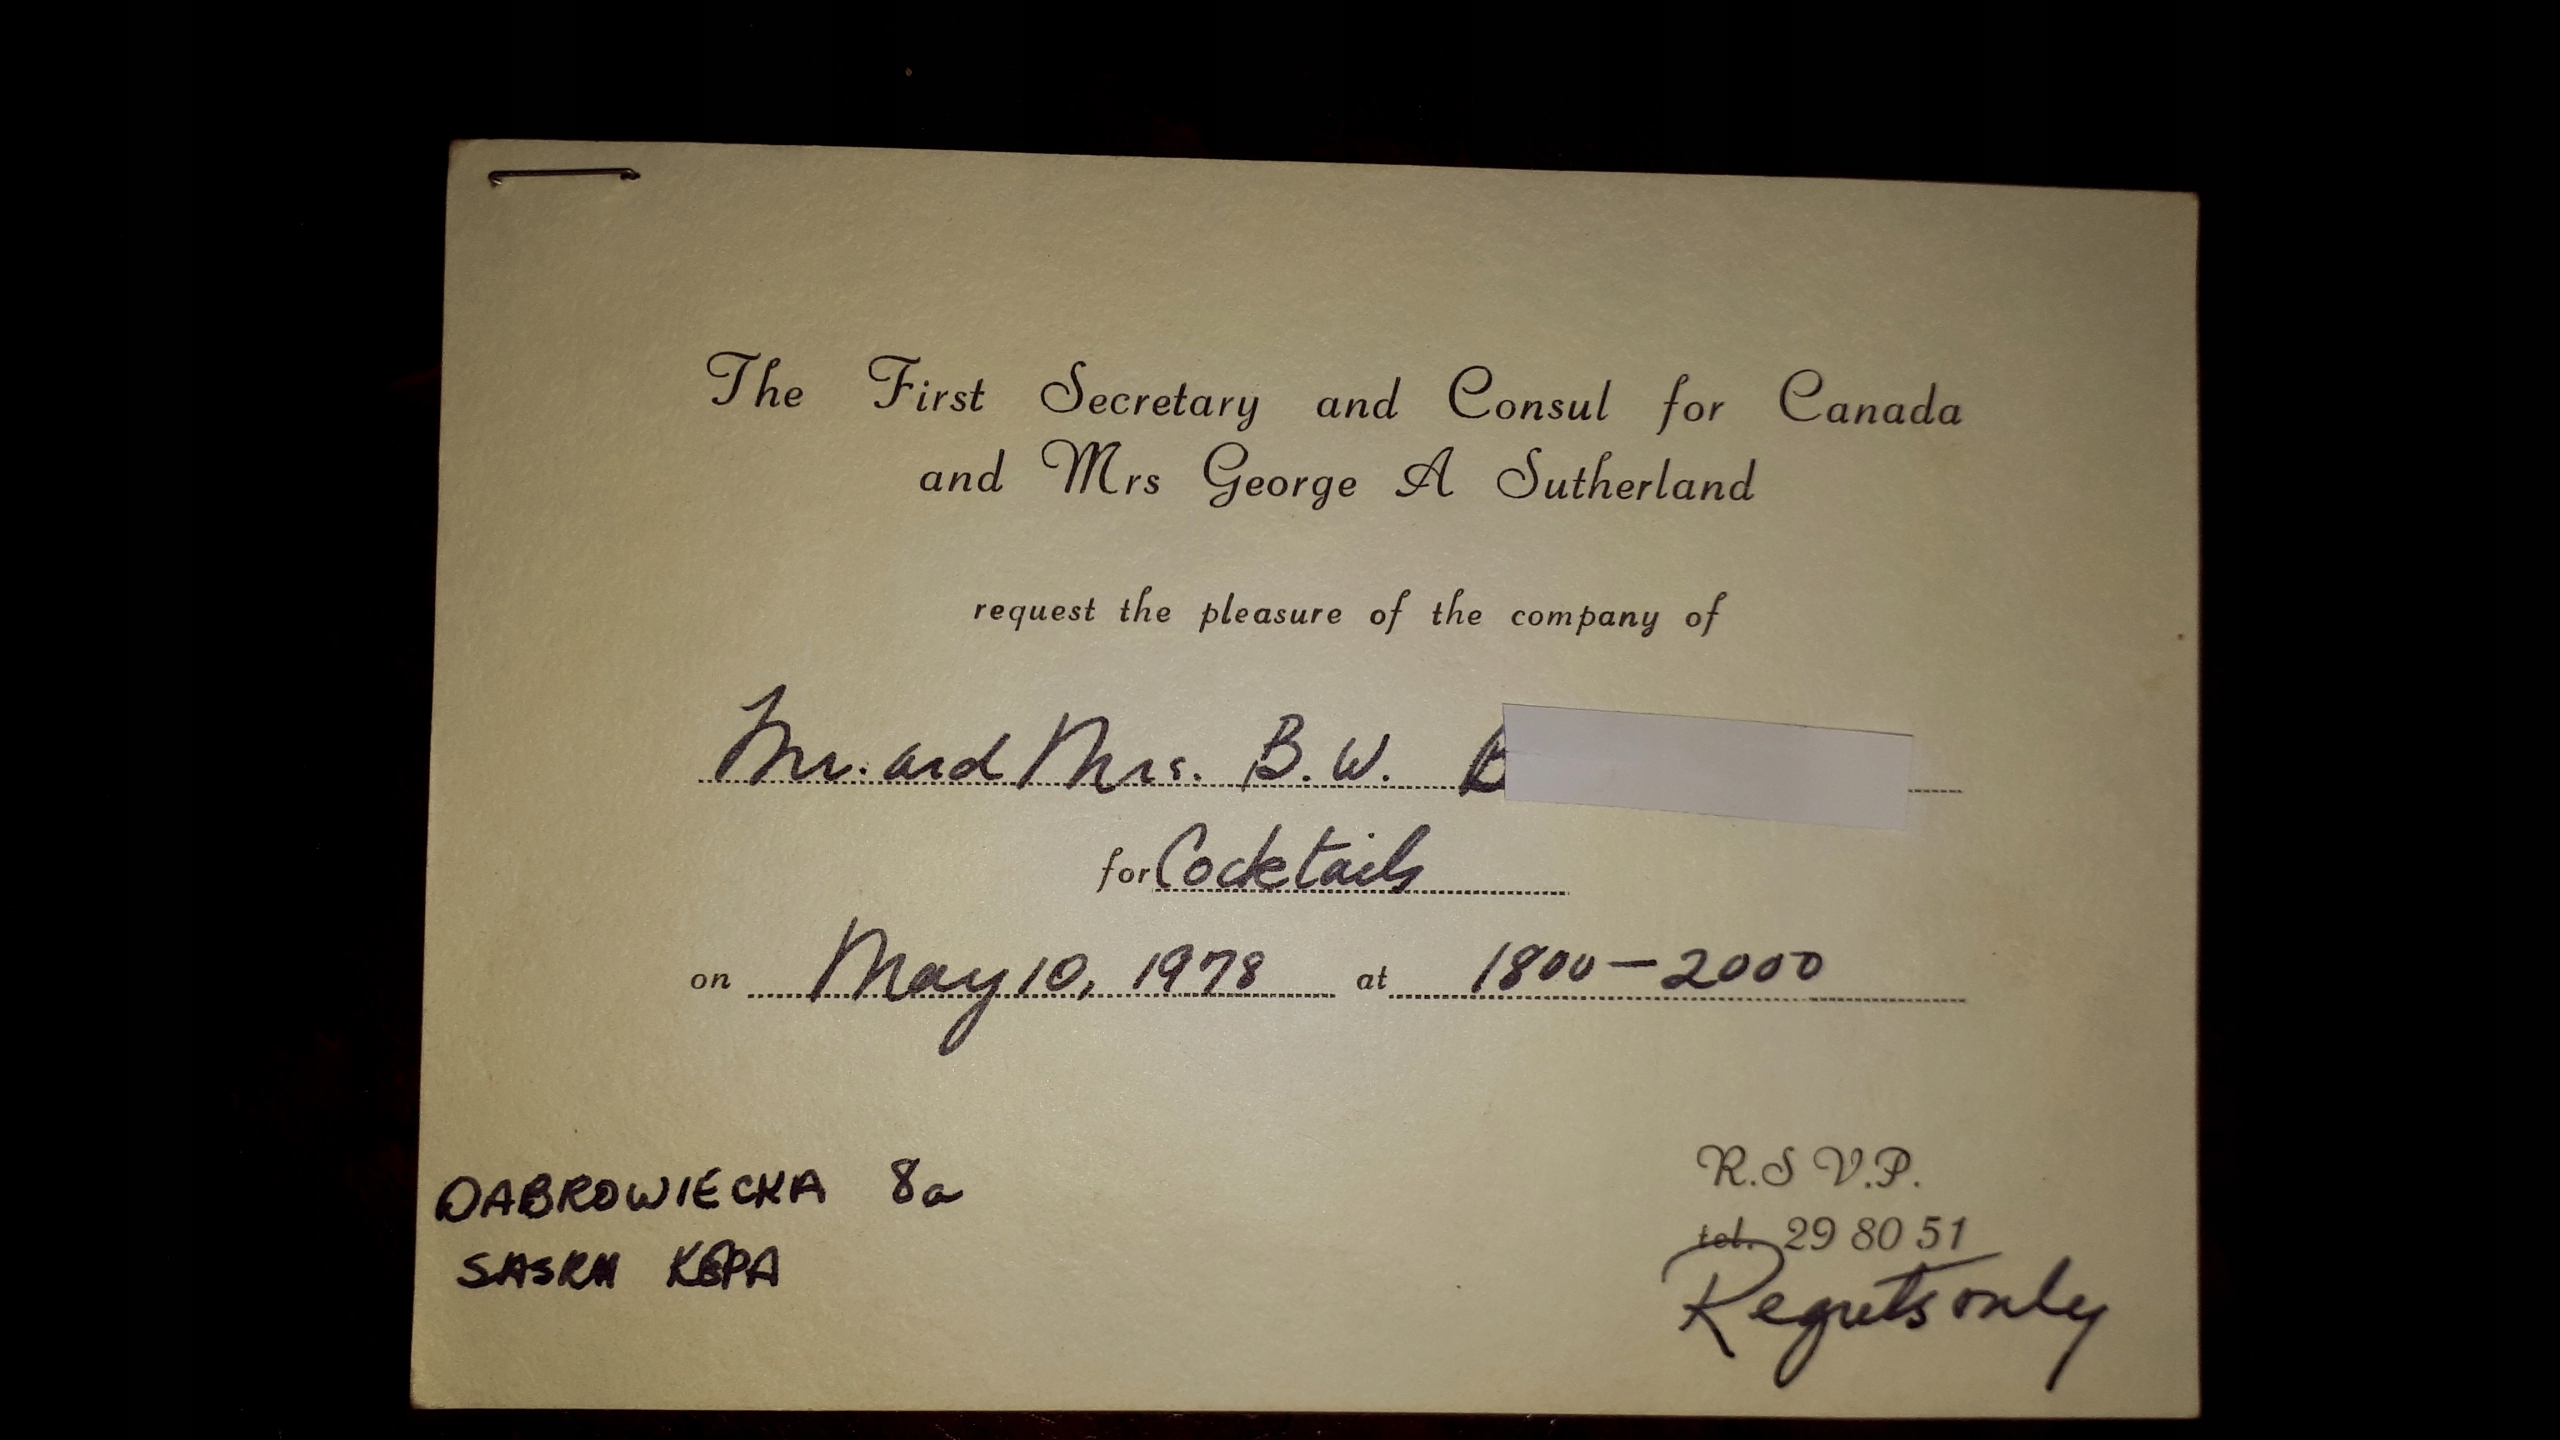 The First Secretary and Consul for Canada
and Mrs George A Sutherland
request the pleasure of the company of
Mr. and Mrs. B. W. B
for Cocktails
on May 10, 1978 at 1800-2000
DABROWIECKA 8a
SASKA KEPA
R.S V.P.
tel. 29 80 51
Regrets only